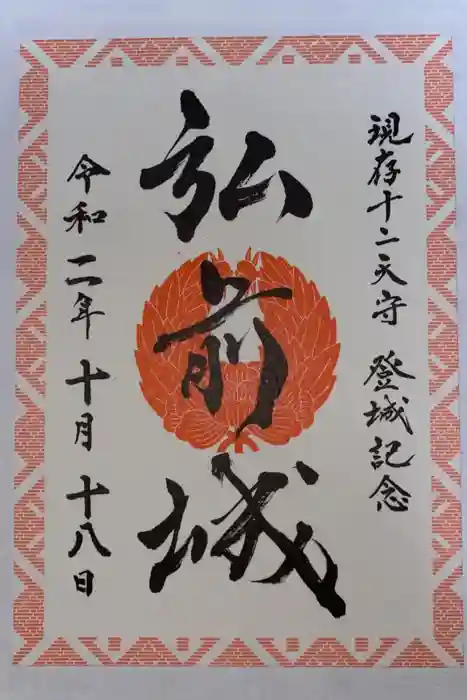 現存十二天守 登城記念
弘前城
令和二年 十月 十八日